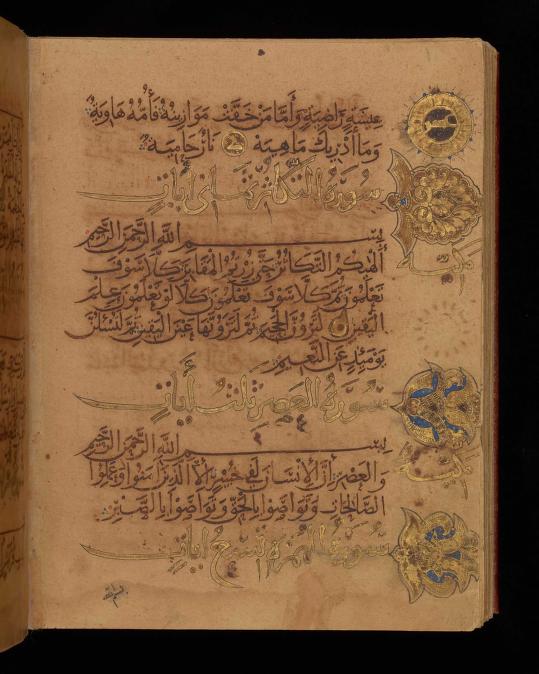 عِيشَةٍ رَّاضِيَةٍ وَأَمَّا مَنْ خَفَّتْ مَوَازِينُهُ فَأُمُّهُ هَاوِيَةٌ
وَمَا أَدْرٰيكَ مَاهِيَهْ نَارٌ حَامِيَةٌ
سورة التكاثر ثماني آيات
بِسْمِ اللَّهِ الرَّحْمَنِ الرَّحِيمِ
أَلْهٰيكُمُ التَّكَاثُرُ حَتَّى زُرْتُمُ الْمَقَابِرَ كَلَّا سَوْفَ
تَعْلَمُونَ ثُمَّ كَلَّا سَوْفَ تَعْلَمُونَ كَلَّا لَوْ تَعْلَمُونَ عِلْمَ
الْيَقِينِ لَتَرَوُنَّ الْجَحِيمَ ثُمَّ لَتَرَوُنَّهَا عَيْنَ الْيَقِينِ ثُمَّ لَتُسْئَلُنَّ
يَوْمَئِذٍ عَنِ النَّعِيمِ
سورة العصر ثلث آيات
بِسْمِ اللَّهِ الرَّحْمَنِ الرَّحِيمِ
وَالْعَصْرِ إِنَّ الْإِنْسَانَ لَفِي خُسْرٍ إِلَّا الَّذِينَ آمَنُوا وَعَمِلُوا
الصَّالِحَاتِ وَتَوَاصَوْا بِالْحَقِّ وَتَوَاصَوْا بِالصَّبْرِ
سورة الهمزة تسع آيات